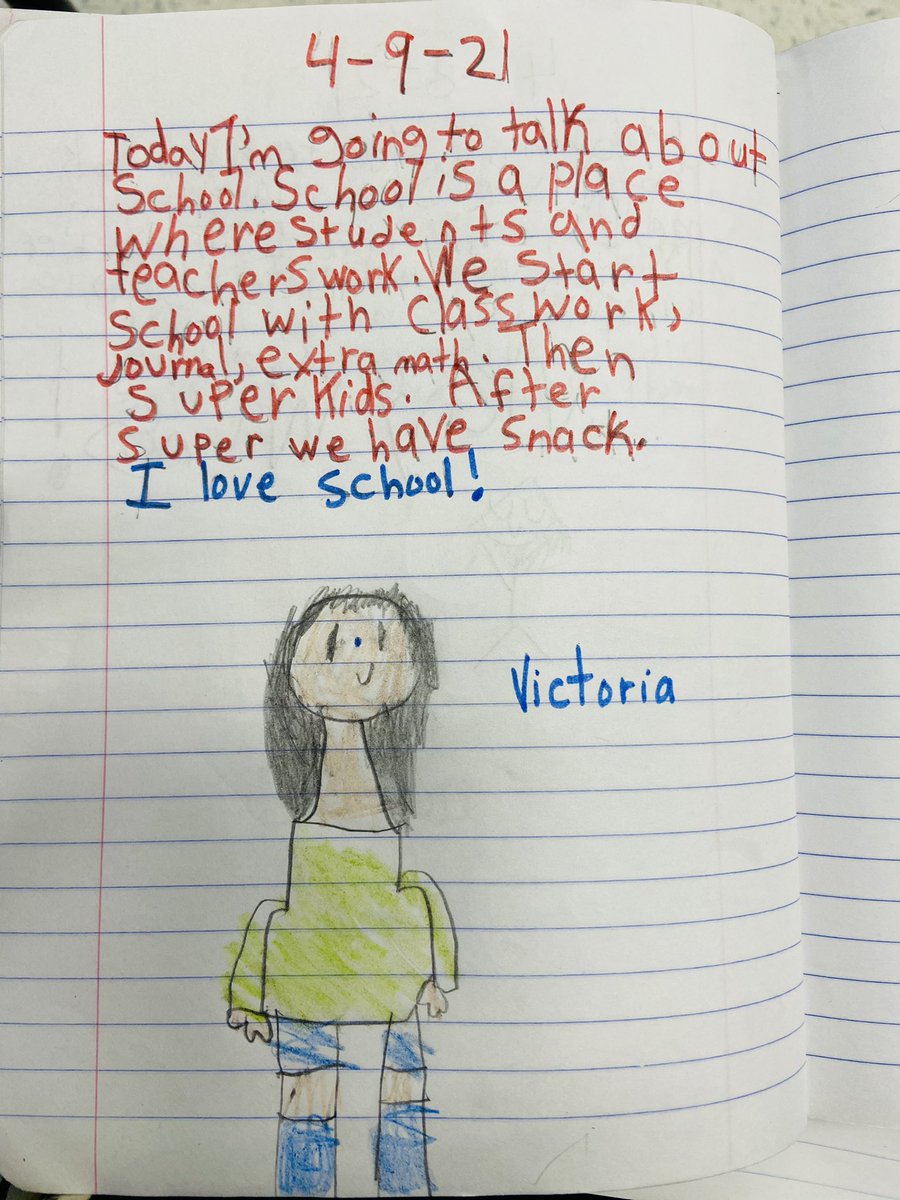 4-9-21
Today I'm going to talk about
School. School is a place
Where students and
teachers work. We start
School with Classwork,
Journal, extra math. Then
Super Kids. After
super we have snack.
I love school!
Victoria